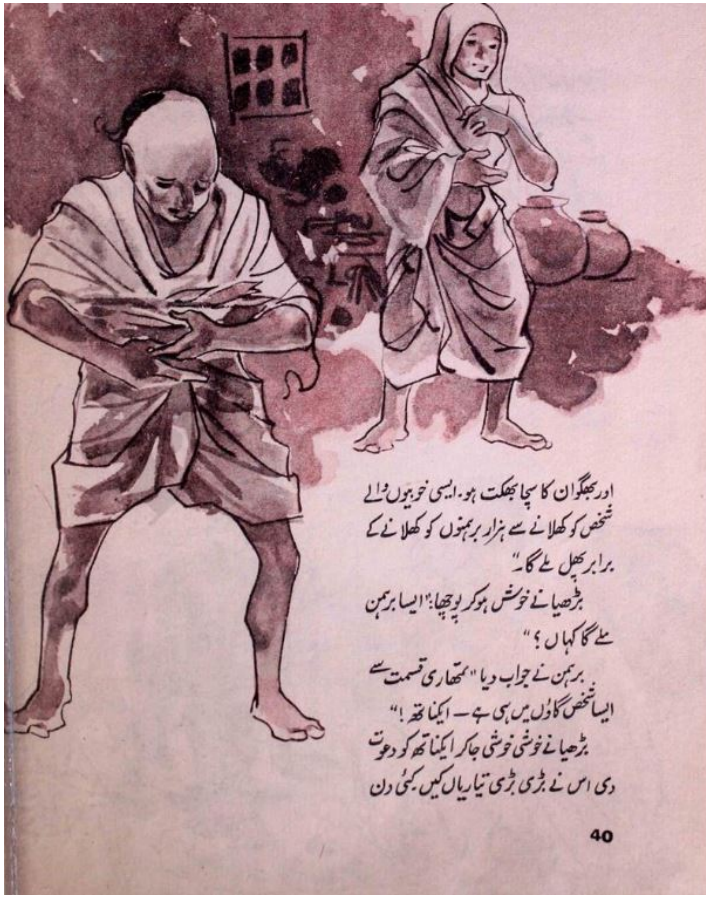 اور بھگوان کا سچا بھکت ہو۔ ایسی خوبیوں والے
شخص کو کھلانے سے ہزار برہمنوں کو کھلانے کے
برابر پھل ملے گا۔"
بڑھیا نے خوش ہو کر پوچھا: "ایسا برہمن
ملے گا کہاں؟"
برہمن نے جواب دیا "تمھاری قسمت سے
ایسا شخص گاؤں میں ہی ہے — ایکناتھ!"
بڑھیا نے خوشی خوشی جا کر ایکناتھ کو دعوت
دی اس نے بڑی بڑی تیاریاں کیں کئی دن
40